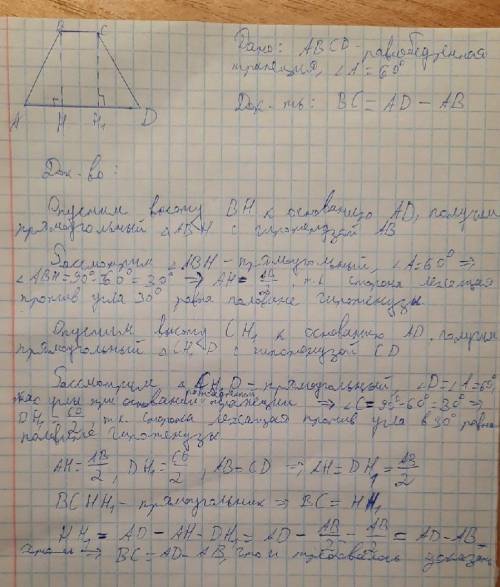 B C
A H H₁ D
Дано: ABCD - равнобедренная
трапеция, ∠A = 60°
Док-ть: BC = AD - AB
Док-во:
Опустим высоту BH к основанию AD, получим
прямоугольный △ABH с гипотенузой AB
Рассмотрим △ABH - прямоугольный, ∠A=60° ⇒
∠ABH=90°-60°=30° ⇒ AH = AB/2, т.к сторона лежащая
против угла 30° равна половине гипотенузы
Опустим высоту CH₁ к основанию AD, получим
прямоугольный △CH₁D с гипотенузой CD
Рассмотрим △CH₁D - прямоугольный, ∠D=∠A=60°,
как углы при основании трапеции ⇒ ∠C=90°-60°=30° ⇒
DH₁ = CD/2, т.к. сторона лежащая против угла в 30° равна
половине гипотенузы
AH = AB/2, DH₁ = CD/2, AB = CD ⇒ AH = DH₁ = AB/2
BCHH₁ - прямоугольник ⇒ BC = HH₁
HH₁ = AD - AH - DH₁ = AD - AB/2 - AB/2 = AD - AB
⇒ BC = AD - AB, что и требовалось доказать